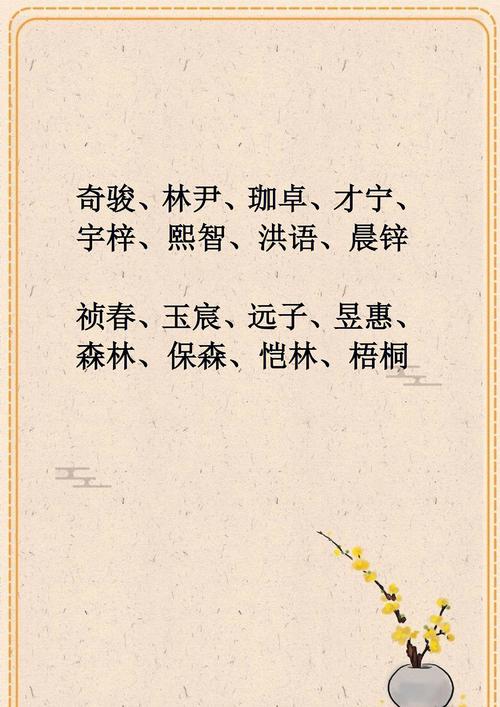 奇骏、林尹、珈卓、才宁、
宇梓、熙智、洪语、晨锌
祯春、玉宸、远子、昱惠、
森林、保森、恺林、梧桐